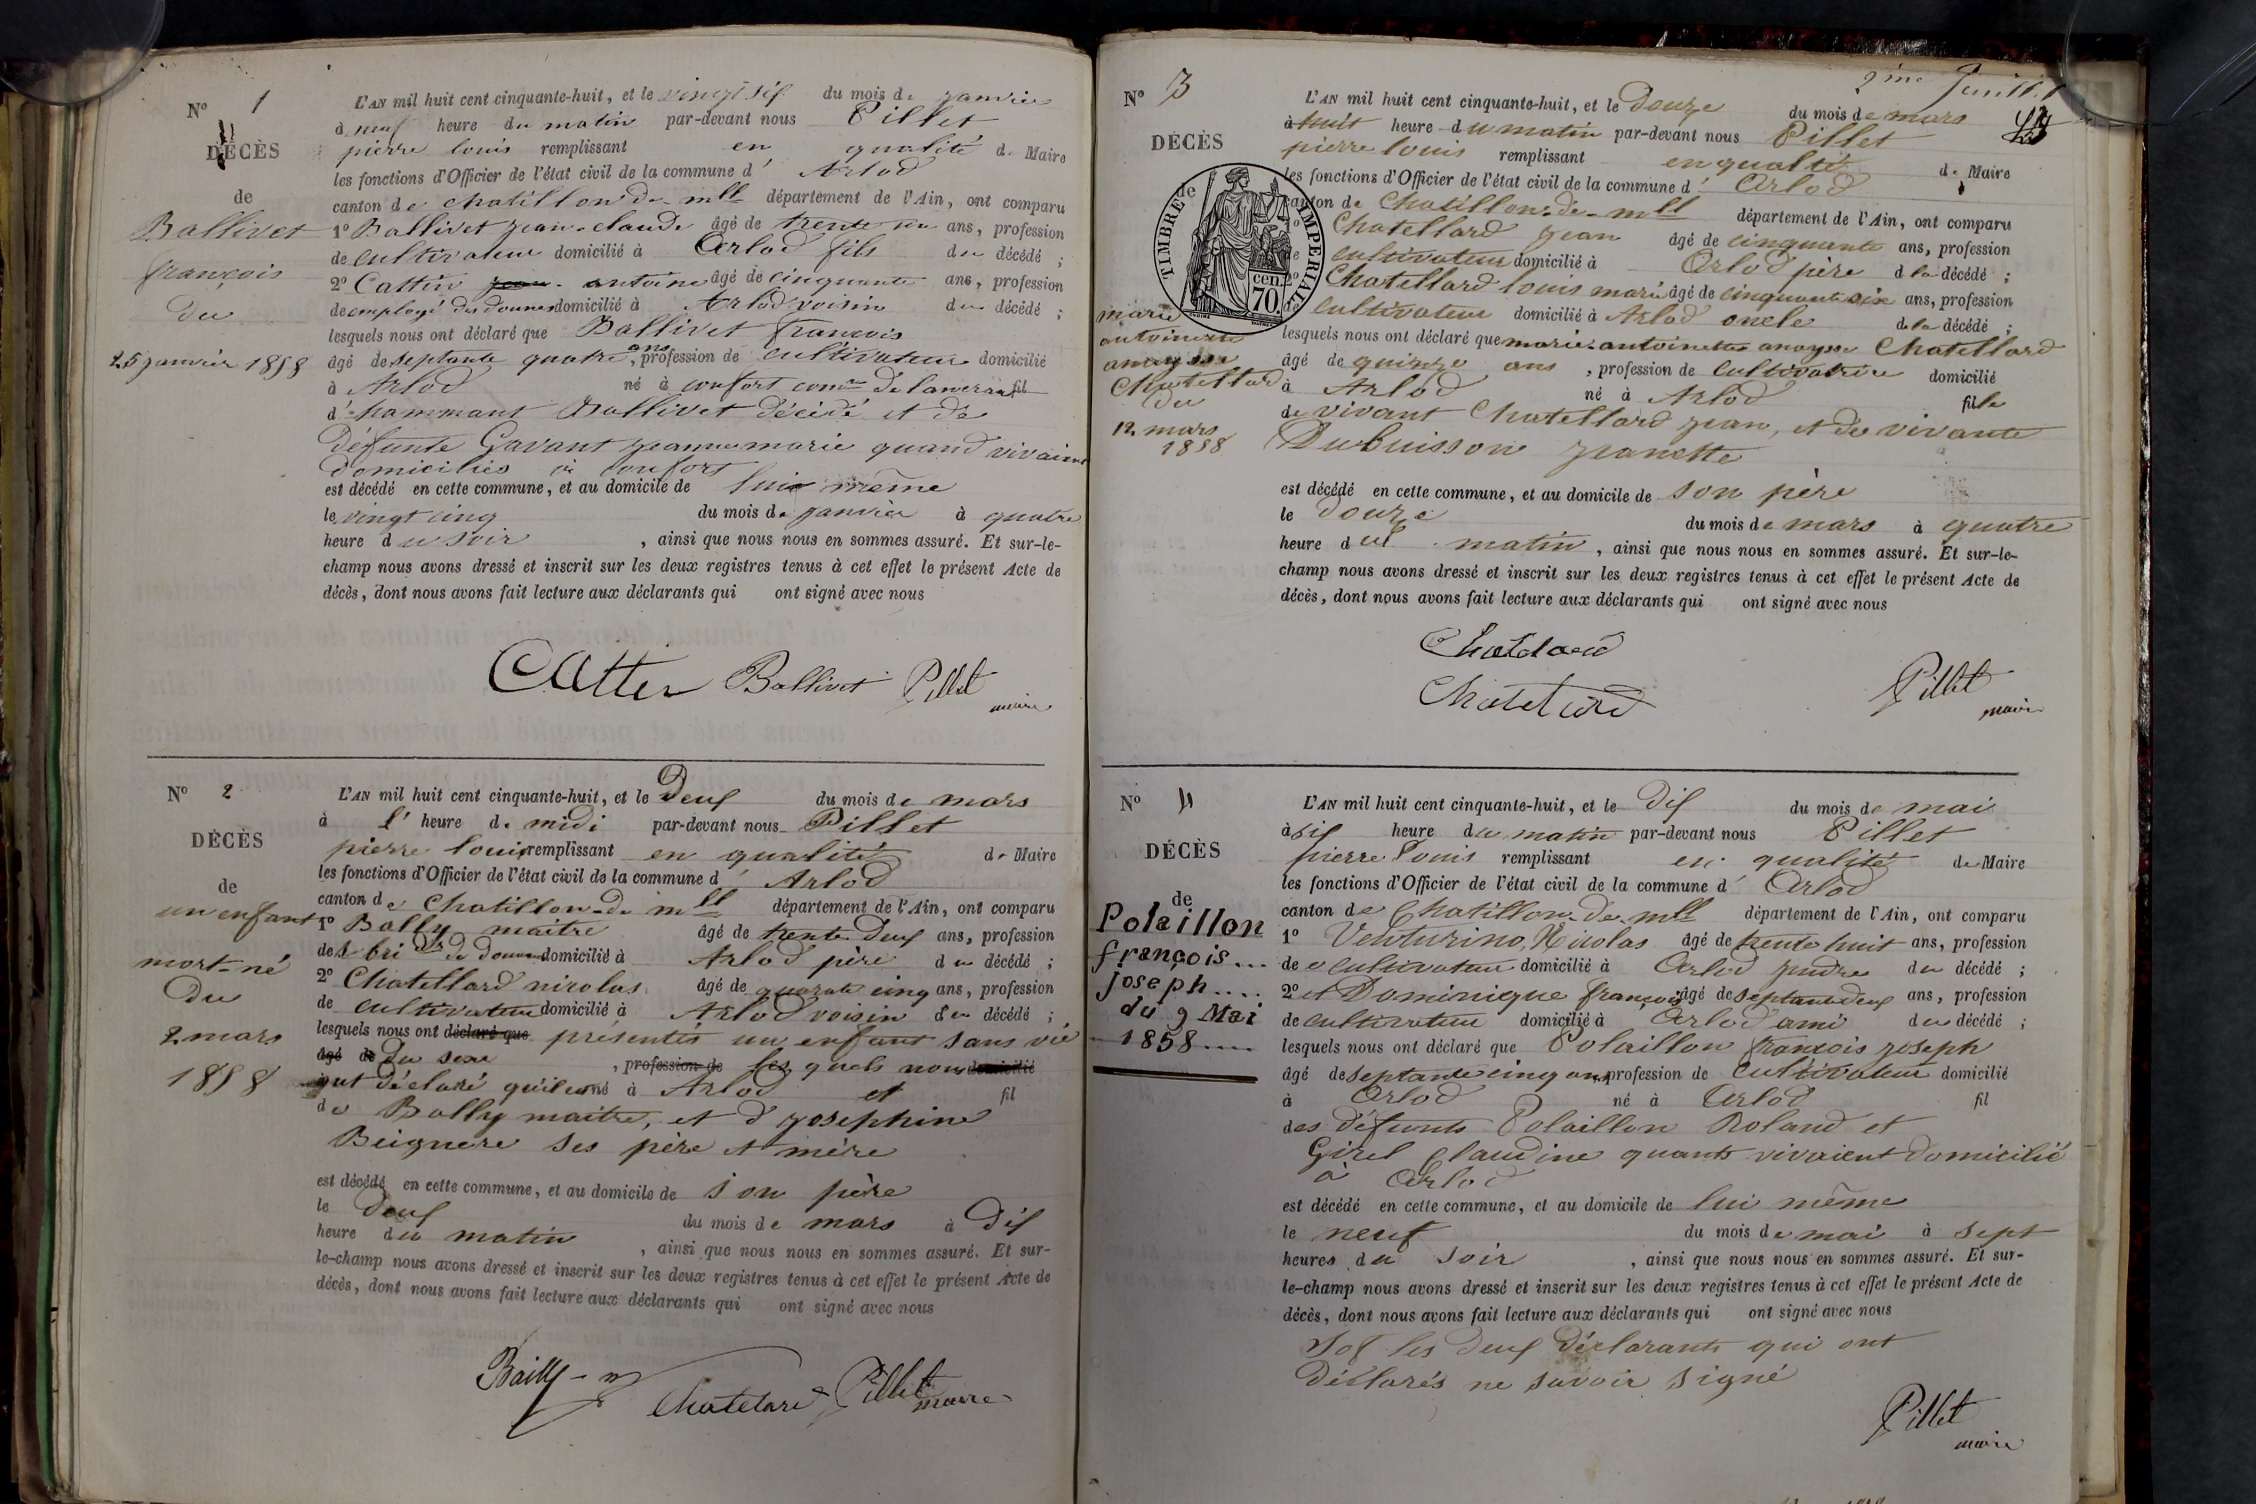 N° 1
DÉCÈS
de
Ballivet
françois
du
25 janvier 1858
L'AN mil huit cent cinquante-huit, et le vingt six du mois de janvier
à neuf heure du matin par-devant nous Pillet
pierre louis remplissant en qualité de Maire
les fonctions d'Officier de l'état civil de la commune d' Arlod
canton de chatillon de mll département de l'Ain, ont comparu
1° Ballivet jean-claude âgé de trente ans, profession
de cultivateur domicilié à Arlod fils du décédé ;
2° Cattin antoine âgé de cinquante ans, profession
de employé des douanes domicilié à Arlod voisin du décédé ;
lesquels nous ont déclaré que Ballivet francois
âgé de septante quatre ans, profession de cultivateur domicilié
à Arlod né à confort comne de lancrans fil
d' hammant Ballivet décédé et de
défunte Gavant jeanne marie quand vivaient
domiciliés à confort
est décédé en cette commune, et au domicile de lui même
le vingt cinq du mois de janvier à quatre
heure du soir , ainsi que nous nous en sommes assuré. Et sur-le-
champ nous avons dressé et inscrit sur les deux registres tenus à cet effet le présent Acte de
décès, dont nous avons fait lecture aux déclarants qui ont signé avec nous
Cattin Ballivet Pillet
maire
N° 2
DÉCÈS
de
un enfant
mort-né
du
2 mars
1858
L'AN mil huit cent cinquante-huit, et le Deux du mois de mars
à l' heure de midi par-devant nous Pillet
pierre louis remplissant en qualité de Maire
les fonctions d'Officier de l'état civil de la commune d' Arlod
canton de chatillon-de mll département de l'Ain, ont comparu
1° Bally maitre âgé de trente deux ans, profession
de s bri er de douane domicilié à Arlod père du décédé ;
2° Chatellard nicolas âgé de quarate cinq ans, profession
de cultivateur domicilié à Arlod voisin du décédé ;
lesquels nous ont déclaré que présentés un enfant sans vie
âgé de du sexe , profession de les quels nous domicilié
ont déclaré qu'il est né à Arlod et fil
de Bally maitre, et d josephine
Beiguere ses père et mère
est décédé en cette commune, et au domicile de son père
le deux du mois de mars à dix
heure du matin , ainsi que nous nous en sommes assuré. Et sur-
le-champ nous avons dressé et inscrit sur les deux registres tenus à cet effet le présent Acte de
décès, dont nous avons fait lecture aux déclarants qui ont signé avec nous
Bailly - m Chatelard Pillet
maire
2ème feuillet
N° 3
DÉCÈS
TIMBRE IMPERIAL
cen.
70.
marie
antoinette
anayse
Chatellard
du
12 mars
1858
L'AN mil huit cent cinquante-huit, et le Douze du mois de mars
à huit heure du matin par-devant nous Pillet
pierre louis remplissant en qualité de Maire
les fonctions d'Officier de l'état civil de la commune d' Arlod
canton de Chatillon-de-mll département de l'Ain, ont comparu
1° Chatellard jean âgé de cinquante ans, profession
de cultivateur domicilié à Arlod père de la décédé ;
2° Chatellard louis marie âgé de cinquante six ans, profession
de cultivateur domicilié à Arlod oncle de la décédé ;
lesquels nous ont déclaré que marie-antoinette anayse Chatellard
âgé de quinze ans , profession de Cultivatrice domicilié
à Arlod né à Arlod fille
de vivant Chatellard jean, et de vivante
Dubuisson jeanette
est décédé en cette commune, et au domicile de son père
le douze du mois de mars à quatre
heure du matin , ainsi que nous nous en sommes assuré. Et sur-le-
champ nous avons dressé et inscrit sur les deux registres tenus à cet effet le présent Acte de
décès, dont nous avons fait lecture aux déclarants qui ont signé avec nous
Chatelard
Chatelard Pillet
maire
N° 4
DÉCÈS
de
Polaillon
françois...
Joseph....
du 9 Mai
1858....
L'AN mil huit cent cinquante-huit, et le dix du mois de mai
à six heure du matin par-devant nous Pillet
pierre louis remplissant en qualité de Maire
les fonctions d'Officier de l'état civil de la commune d' Arlod
canton de Chatillon-de mll département de l'Ain, ont comparu
1° Venturino, Nicolas âgé de trente huit ans, profession
de cultivateur domicilié à Arlod gendre du décédé ;
2° et Dominique françois âgé de septante deux ans, profession
de cultivateur domicilié à Arlod ami du décédé ;
lesquels nous ont déclaré que Polaillon françois joseph
âgé de septante cinq ans, profession de Cultivateur domicilié
à Arlod né à Arlod fil
des défunts Polaillon Roland et
Girel Claudine quants vivaient domicilié
à Arlod
est décédé en cette commune, et au domicile de lui même
le neuf du mois de mai à sept
heures du soir , ainsi que nous nous en sommes assuré. Et sur-
le-champ nous avons dressé et inscrit sur les deux registres tenus à cet effet le présent Acte de
décès, dont nous avons fait lecture aux déclarants qui ont signé avec nous
les deux déclarants qui ont
déclarés ne savoir signé
Pillet
maire